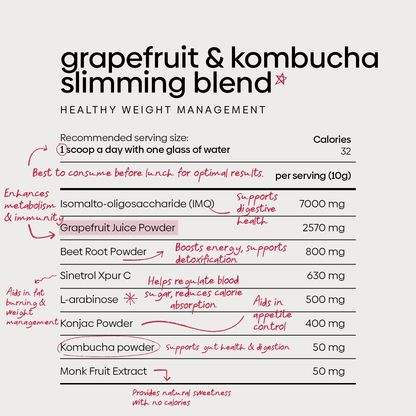 grapefruit & kombucha
slimming blend
HEALTHY WEIGHT MANAGEMENT
Recommended serving size:
1 scoop a day with one glass of water
Calories
32
Best to consume before lunch for optimal results.
per serving (10g)
Enhances
metabolism
& immunity
Isomalto-oligosaccharide (IMO)
Supports
digestive
health
7000 mg
Grapefruit Juice Powder
2570 mg
Beet Root Powder
Boosts energy, supports
detoxification
800 mg
Sinetrol Xpur C
630 mg
Aids in fat
burning &
weight
management
L-arabinose
Helps regulate blood
sugar, reduces calorie
absorption.
500 mg
Konjac Powder
Aids in
appetite
control
400 mg
Kombucha powder
supports gut health & digestion
50 mg
Monk Fruit Extract
50 mg
Provides natural sweetness
with no calories